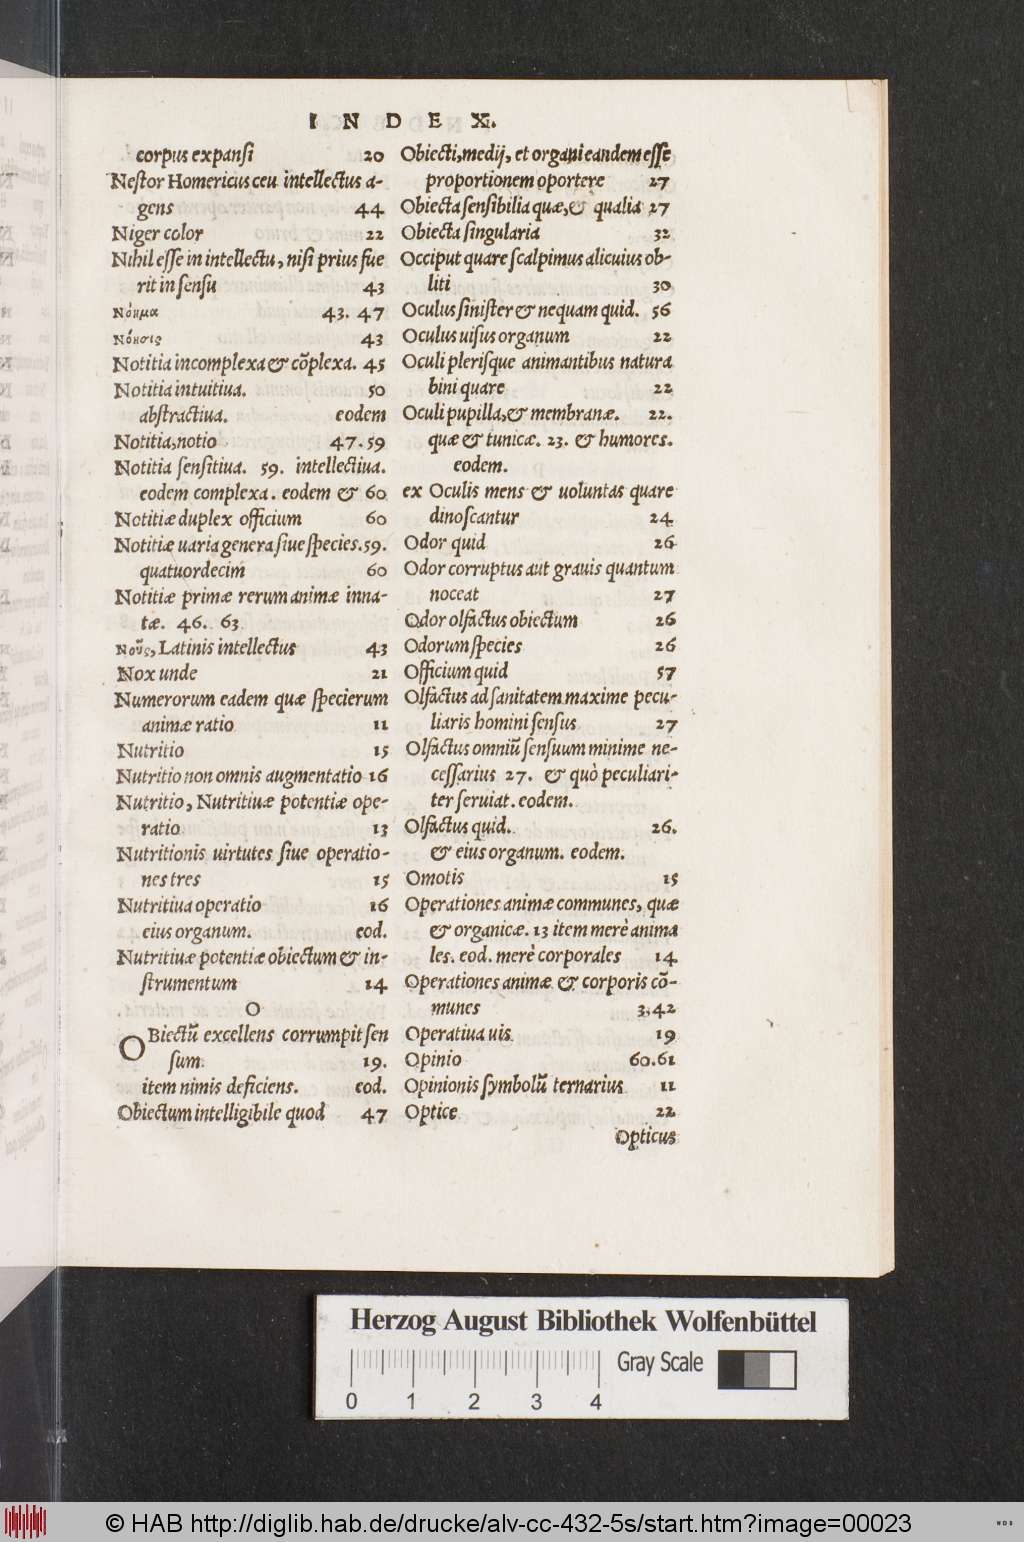 INDEX.
corpus expansi 20
Nestor Homericus ceu intellectus a-
gens 44
Niger color 22
Nihil esse in intellectu, nisi prius fue
rit in sensu 43
Νόημα 43. 47
Νόησις 43
Notitia incomplexa & cõplexa. 45
Notitia intuitiua. 50
abstractiua. eodem
Notitia, notio 47. 59
Notitia sensitiua. 59. intellectiua.
eodem complexa. eodem & 60
Notitiæ duplex officium 60
Notitiæ uaria genera siue species. 59.
quatuordecim 60
Notitiæ primæ rerum animæ inna-
tæ. 46. 63
Νοῦς, Latinis intellectus 43
Nox unde 21
Numerorum eadem quæ specierum
animæ ratio 11
Nutritio 15
Nutritio non omnis augmentatio 16
Nutritio, Nutritiuæ potentiæ ope-
ratio 13
Nutritionis uirtutes siue operatio-
nes tres 15
Nutritiua operatio 16
eius organum. eod.
Nutritiuæ potentiæ obiectum & in-
strumentum 14
O
OBiectũ excellens corrumpit sen
sum 19.
item nimis deficiens. eod.
Obiectum intelligibile quod 47
Obiecti, medij, et organi eandem esse
proportionem oportere 27
Obiecta sensibilia quæ, & qualia 27
Obiecta singularia 32
Occiput quare scalpimus alicuius ob-
liti 30
Oculus sinister & nequam quid. 56
Oculus uisus organum 22
Oculi plerisque animantibus natura
bini quare 22
Oculi pupilla, & membranæ. 22.
quæ & tunicæ. 23. & humores.
eodem.
ex Oculis mens & uoluntas quare
dinoscantur 24
Odor quid 26
Odor corruptus aut grauis quantum
noceat 27
Odor olfactus obiectum 26
Odorum species 26
Officium quid 57
Olfactus ad sanitatem maxime pecu-
liaris homini sensus 27
Olfactus omniũ sensuum minime ne-
cessarius 27. & quò peculiari-
ter seruiat. eodem.
Olfactus quid. 26.
& eius organum. eodem.
Omotis 15
Operationes animæ communes, quæ
& organicæ. 13 item merè anima
les. eod. merè corporales 14
Operationes animæ & corporis cõ-
munes 3. 42
Operatiua uis 19
Opinio 60. 61
Opinionis symbolũ ternarius 11
Optice 22
Opticus
Herzog August Bibliothek Wolfenbüttel
Gray Scale
0 1 2 3 4
© HAB http://diglib.hab.de/drucke/alv-cc-432-5s/start.htm?image=00023